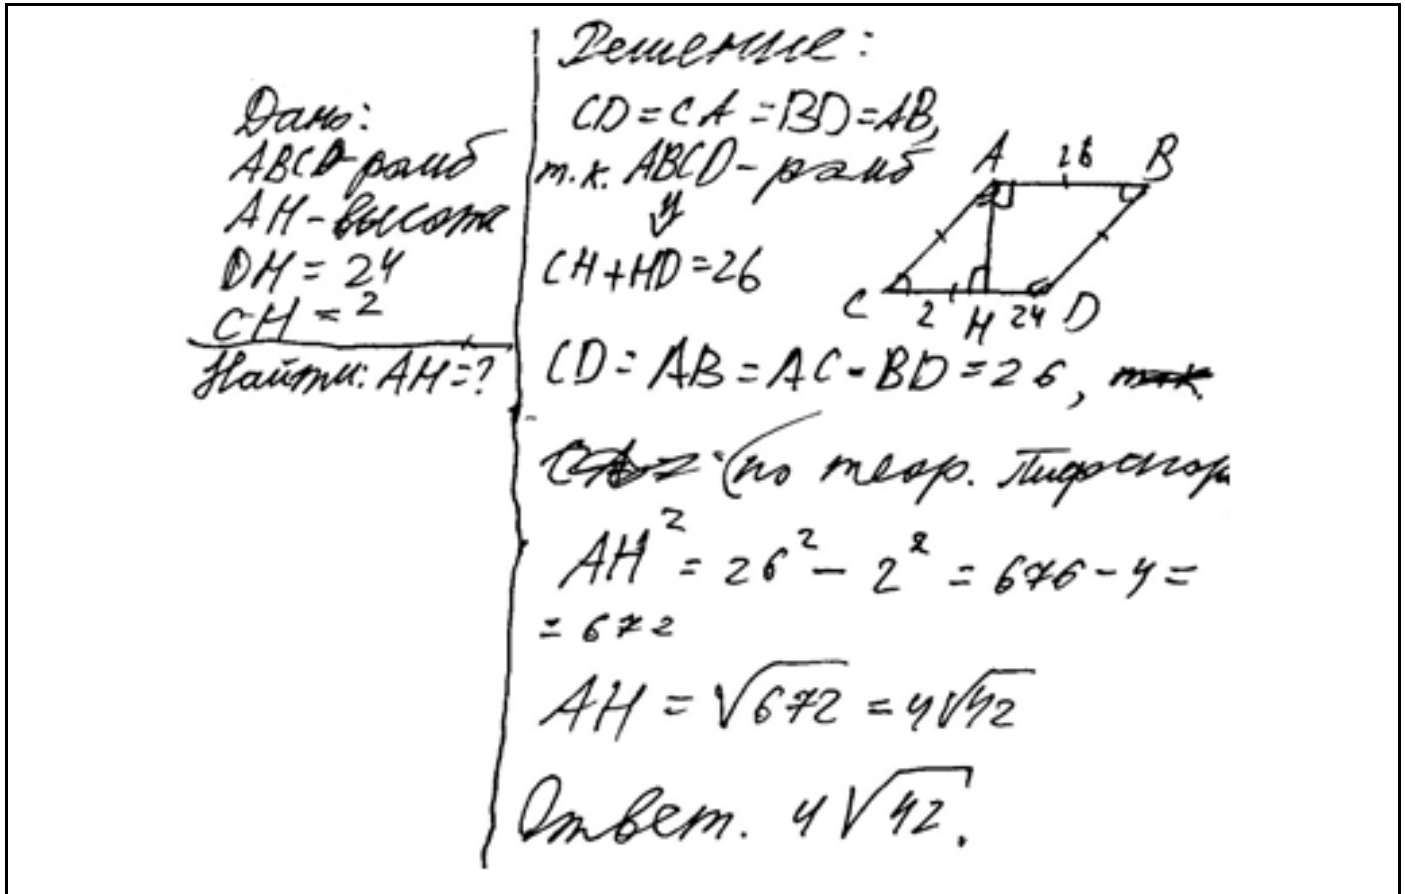 Дано:
ABCD-ромб
AH-высота
DH = 24
CH = 2
Найти: AH=?
Решение:
CD = CA = BD = AB,
т.к. ABCD - ромб
⇓
CH + HD = 26
CD = AB = AC = BD = 26,
(по теор. Пифагора
AH² = 26² - 2² = 676 - 4 =
= 672
AH = √672 = 4√42
Ответ. 4√42.
A 26 B
C 2 H 24 D